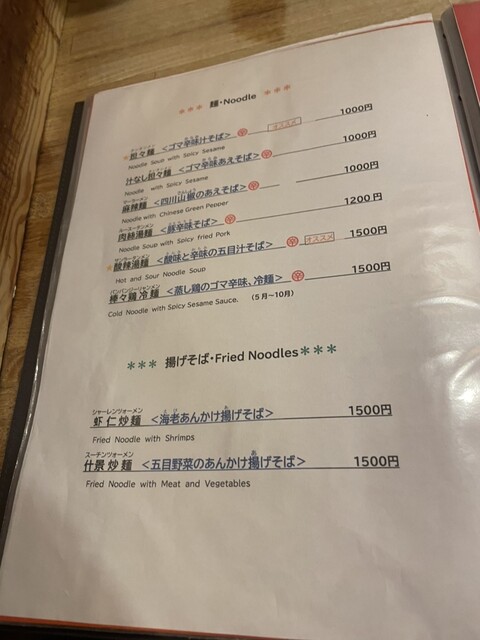 ＊＊＊ 麺・Noodle ＊＊＊
担々麺 <ゴマ辛味汁そば> 辛 オススメ 1000円
Noodle Soup with Spicy Sesame
汁なし担々麺 <ゴマ辛味あえそば> 辛 1000円
Noodle with Spicy Sesame
麻辣麺 <四川山椒のあえそば> 辛 1000円
Noodle with Chinese Green Pepper
肉絲湯麺 <豚辛味そば> 辛 1200円
Noodle Soup with Spicy fried Pork
酸辣湯麺 <酸味と辛味の五目汁そば> 辛 オススメ 1500円
Hot and Sour Noodle Soup
バンバンジーリャンメン
棒々鶏冷麺 <蒸し鶏のゴマ辛味、冷麺> 辛 1500円
Cold Noodle with Spicy Sesame Sauce. (5月〜10月)
＊＊＊ 揚げそば・Fried Noodles＊＊＊
シャーレンツォーメン
虾仁炒麺 <海老あんかけ揚げそば> 1500円
Fried Noodle with Shrimps
スーチンツォーメン
什景炒麺 <五目野菜のあんかけ揚げそば> 1500円
Fried Noodle with Meat and Vegetables